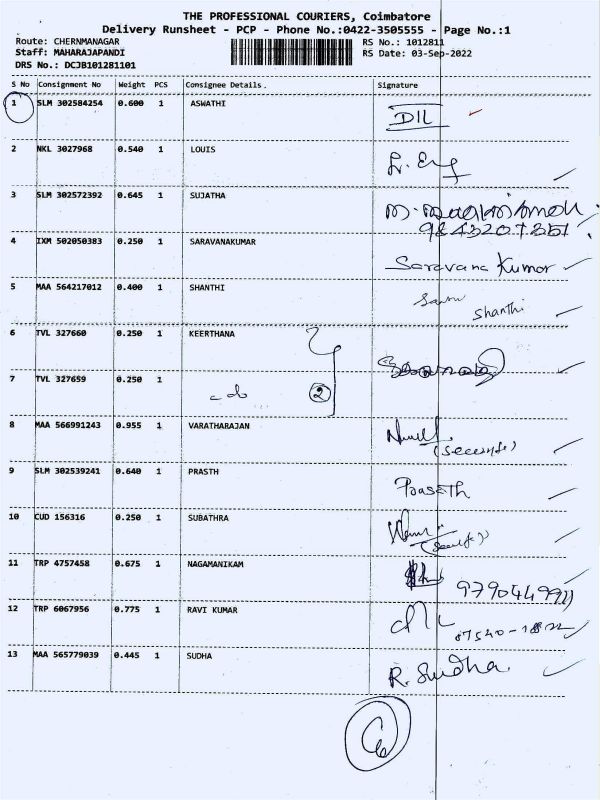 THE PROFESSIONAL COURIERS, Coimbatore
Delivery Runsheet - PCP - Phone No.:0422-3505555 - Page No.:1
Route: CHERNMANAGAR RS No.: 1012811
Staff: MAHARAJAPANDI RS Date: 03-Sep-2022
DRS No.: DCJB101281101
S No Consignment No Weight PCS Consignee Details. Signature
1 SLM 302584254 0.600 1 ASWATHI DIL
2 NKL 3027968 0.540 1 LOUIS
3 SLM 302572392 0.645 1 SUJATHA
9843207351
4 IXM 502050383 0.250 1 SARAVANAKUMAR Saravana Kumar
5 MAA 564217012 0.400 1 SHANTHI Shanthi
6 TVL 327660 0.250 1 KEERTHANA
7 TVL 327659 0.250 1 -do- 2
8 MAA 566991243 0.955 1 VARATHARAJAN
9 SLM 302539241 0.640 1 PRASTH Prasath
10 CUD 156316 0.250 1 SUBATHRA
11 TRP 4757458 0.675 1 NAGAMANIKAM
12 TRP 6067956 0.775 1 RAVI KUMAR
13 MAA 565779039 0.445 1 SUDHA R. Sudha